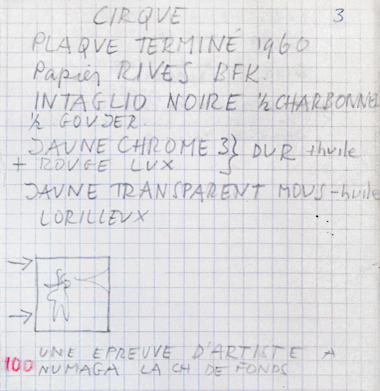 CIRQUE 3
PLAQUE TERMINÉ 1960
Papier RIVES BFK.
INTAGLIO NOIRE ½ CHARBONNEL
½ GOUJER
JAUNE CHROME 3 } DUR +huile
+ ROUGE LUX }
JAUNE TRANSPARENT MOUS-huile
LORILLEUX
UNE EPREUVE D'ARTISTE A
100 NUMAGA LA CH DE FONDS